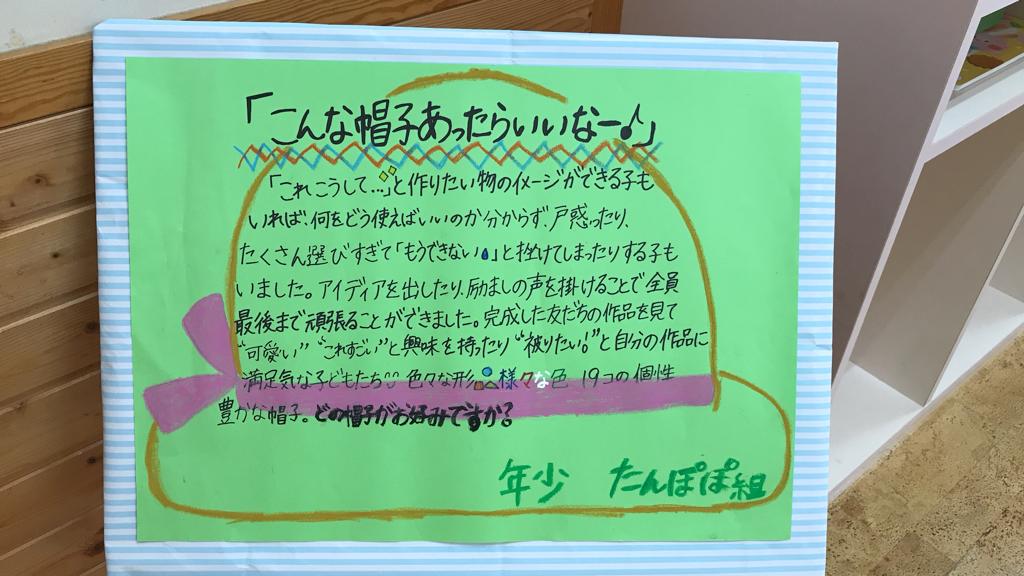 「こんな帽子あったらいいなー♪」
「これこうして…」と作りたい物のイメージができる子も
いれば、何をどう使えばいいのか分からず、戸惑ったり、
たくさん選びすぎて「もうできない」と挫けてしまったりする子も
いました。アイディアを出したり、励ましの声を掛けることで全員
最後まで頑張ることができました。完成した友だちの作品を見て
“可愛い” “これすごい”と興味を持ったり “被りたい!”と自分の作品に
満足気な子どもたち 色々な形 様々な色 19コの個性
豊かな帽子。どの帽子がお好みですか?
年少 たんぽぽ組